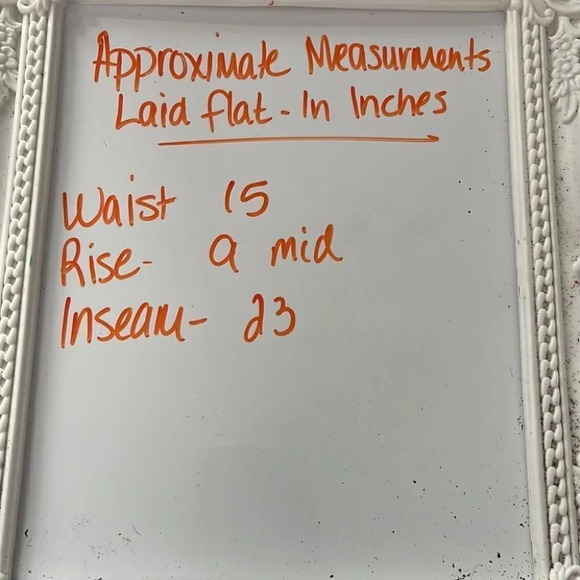 Approximate Measurments
Laid flat - In Inches
Waist 15
Rise- 9 mid
Inseam- 23